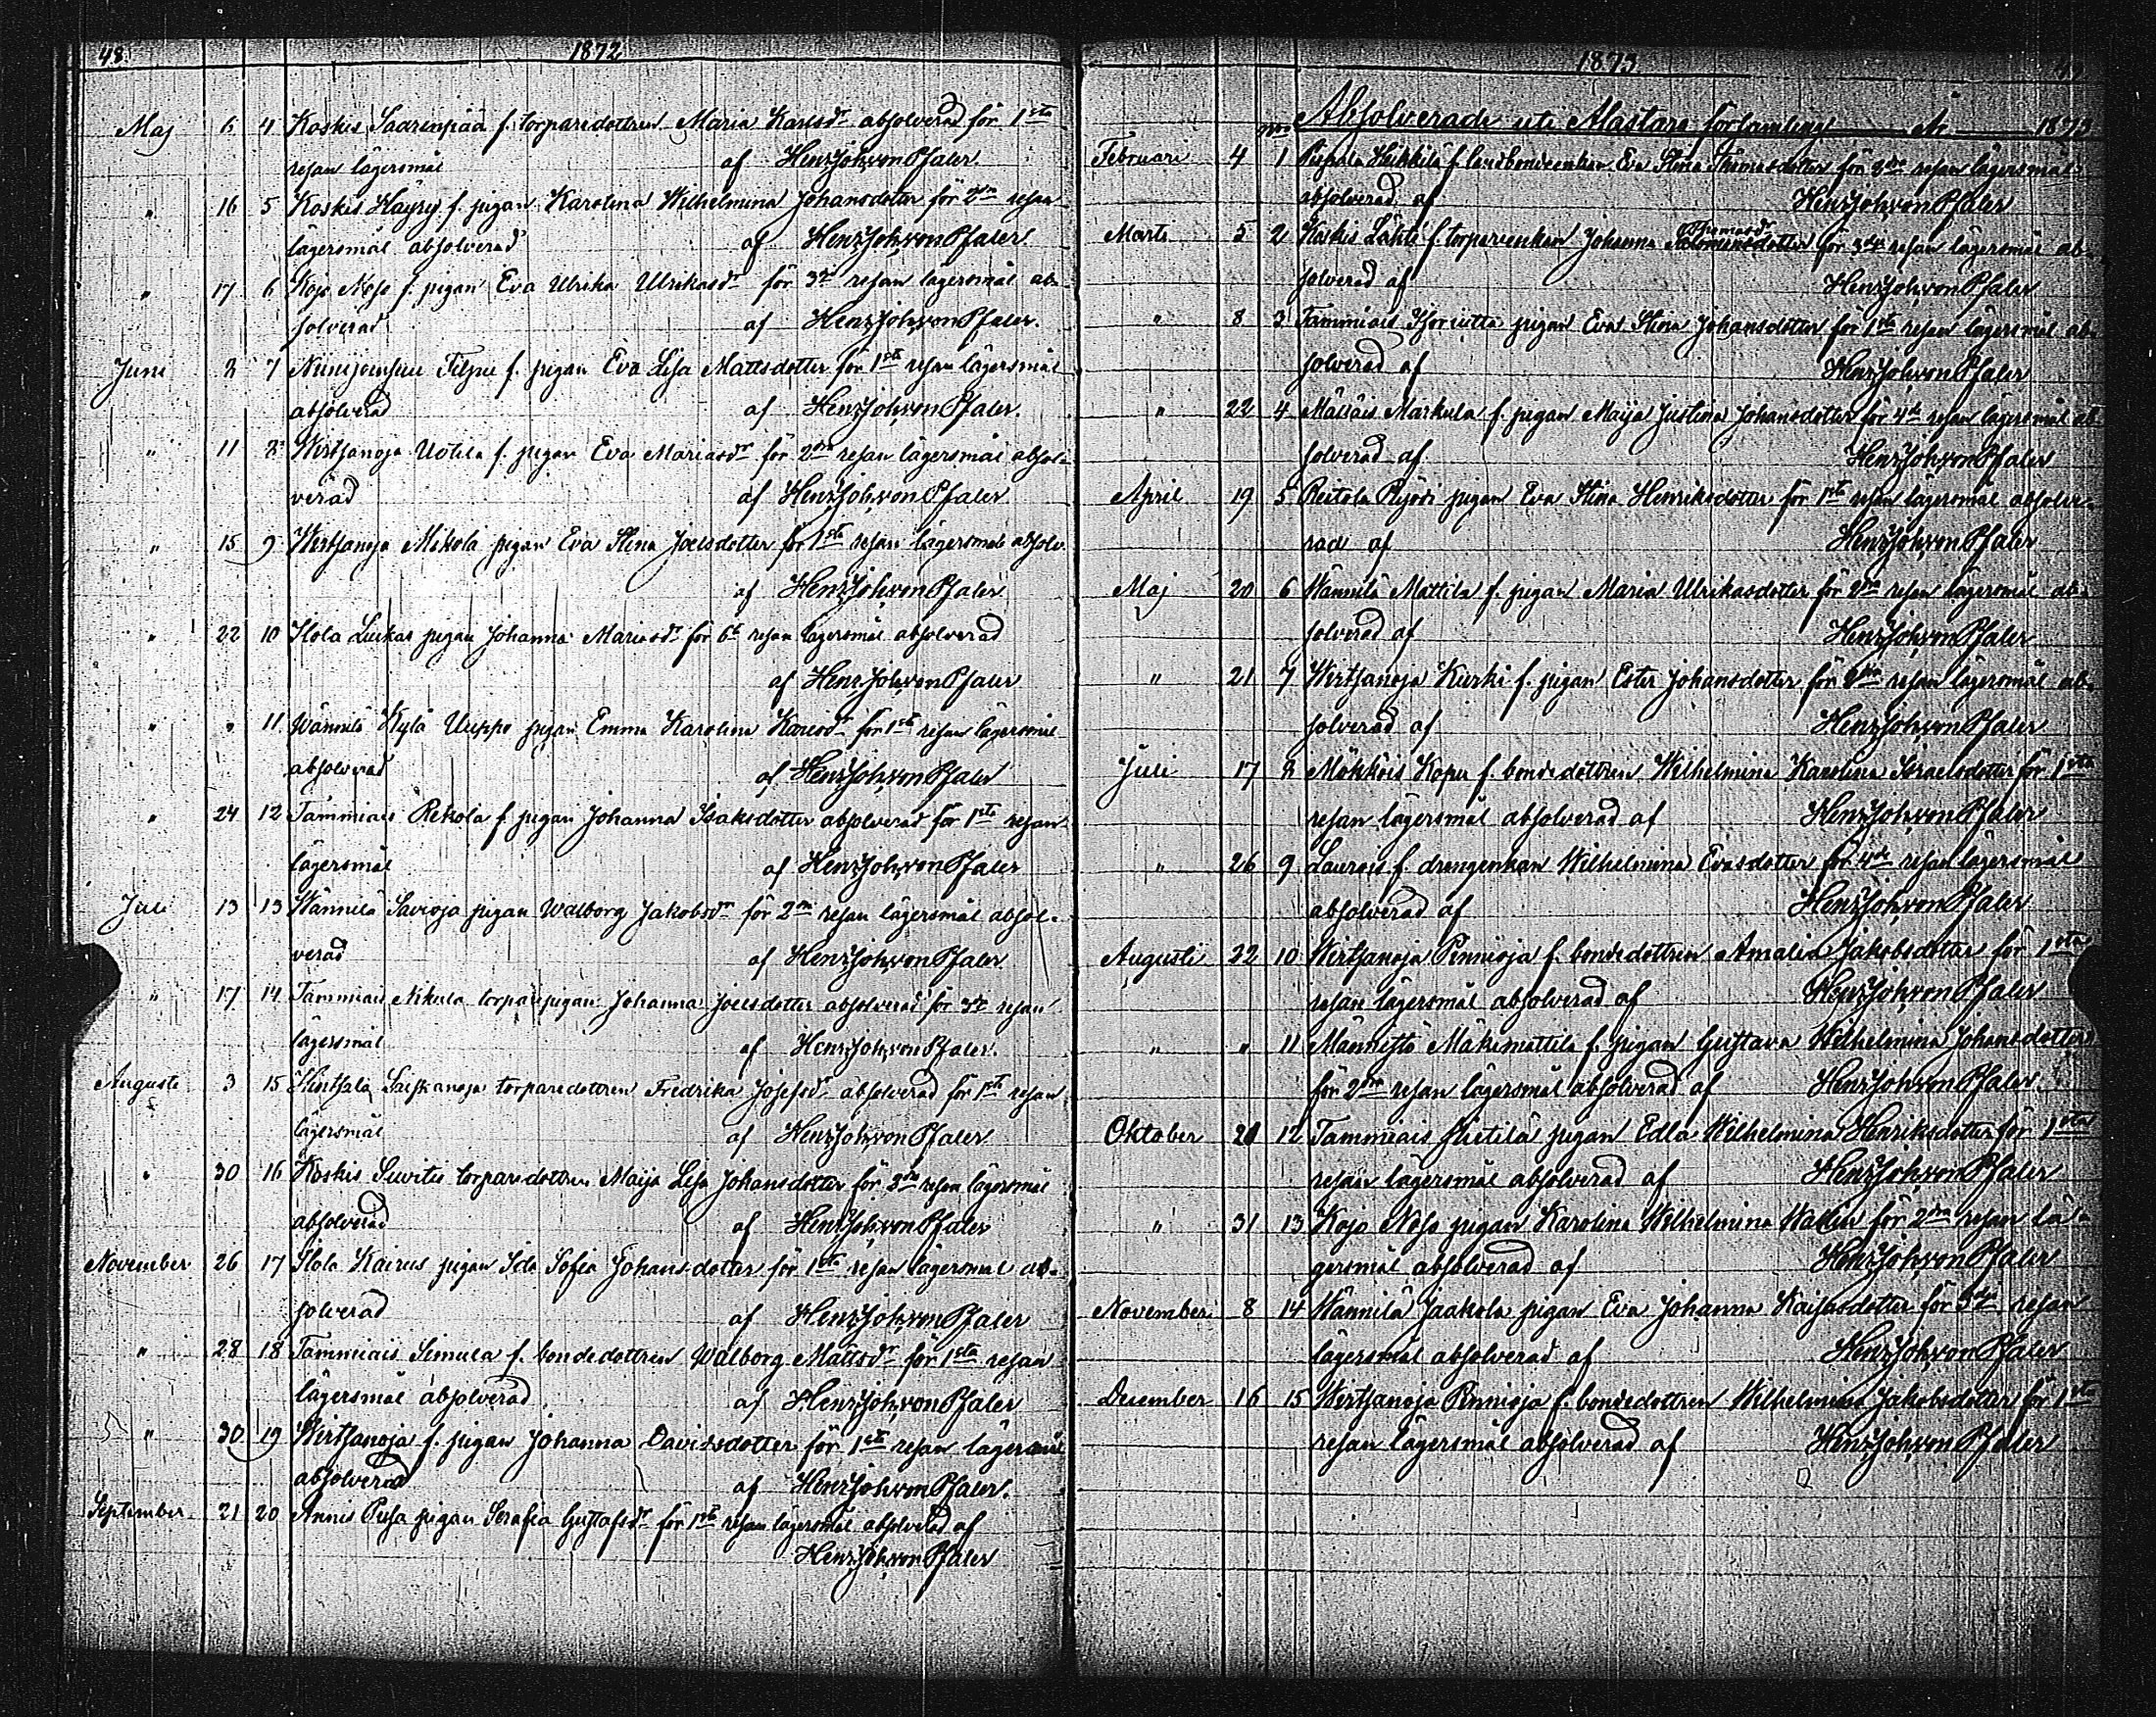 48. 1872
Maj 6 4 Koskis Saarenpää f. torparedottren Maria Karlsdr absolverad för 1sta
resan lägersmål af HenrJohvonPfaler.
" 16 5 Koskis Häyry f. pigan Karolina Wilhelmina Johansdotter för 2dra resan
lägersmål absolverad af HenrJohvonPfaler.
" 17 6 Kojo Noso f. pigan Eva Ulrika Ulrikasdr för 3de resan lägersmål ab-
solverad af HenrJohvonPfaler.
Juni 8 7 f. pigan Eva Lisa Mattsdotter för 1sta resan lägersmål
absolverad af HenrJohvonPfaler.
" 11 8 Wirtsanoja Uotila f. pigan Eva Mariasdr för 2dra resan lägersmål absol-
verad af HenrJohvonPfaler
" 15 9 Wirtsanoja Mikola pigan Eva Stina Joelsdotter för 1sta resan lägersmål absolv.
af HenrJohvonPfaler
" 22 10 Ilola Luukas pigan Johanna Mariasdr för 6te resan lägersmål absolverad
af HenrJohvonPfaler
" " 11 Wännilä Kylä Uuppo pigan Emma Karolina Karlsdr för 1sta resan lägersmål
absolverad af HenrJohvonPfaler
" 24 12 Tammiais Rekola f. pigan Johanna Isaksdotter absolverad för 1sta resan
lägersmål af HenrJohvonPfaler
Juli 13 13 Wännilä Savioja pigan Walborg Jakobsdr för 2dra resan lägersmål absol-
verad af HenrJohvonPfaler.
" 17 14 Tammiais Nikula torparepigan Johanna Joelsdotter absolverad för 3de resan
lägersmål af HenrJohvonPfaler.
Augusti 3 15 torparedottren Fredrika Josefsdr absolverad för 1sta resan
lägersmål af HenrJohvonPfaler
" 30 16 Koskis torparedottren Maija Lisa Johansdotter för 2dra resan lägersmål
absolverad af HenrJohvonPfaler
November 26 17 Ilola Kairus pigan Ida Sofia Johansdotter för 1sta resan lägersmål ab-
solverad af HenrJohvonPfaler
" 28 18 Tammiais Simula f. bondedottren Walborg Mattsdr för 1sta resan
lägersmål absolverad af HenrJohvonPfaler
" 30 19 Wirtsanoja f. pigan Johanna Davidsdotter för 1sta resan lägersmål
absolverad af HenrJohvonPfaler.
September 21 20 Annis pigan Serafia Gustafsdr för 1sta resan lägersmål absolverad af
HenrJohvonPfaler
1873. 49
Nro Absolverade uti Alastaro församling År 1873
Februari 4 1 Heikkilä f. landbondeenkan Eva Stina Thomasdotter för 2dra resan lägersmål
absolverad af HenrJohvonPfaler
Marti 5 2 Koskis Lähte f. torparenkan Johanna Thomasdr Salomonsdotter för 3dje resan lägersmål ab-
solverad af HenrJohvonPfaler
" 8 3 Tammiais pigan Eva Stina Johansdotter för 1sta resan lägersmål ab-
solverad af HenrJohvonPfaler
" 22 4 Mälläis Markula f. pigan Maija Justina Johansdotter för 4de resan lägersmål ab-
solverad af HenrJohvonPfaler
April 19 5 pigan Eva Stina Henriksdotter för 1sta resan lägersmål absolve-
rad af HenrJohvonPfaler
Maj 20 6 Wännilä Mattila f. pigan Maria Ulrikasdotter för 2dra resan lägersmål ab-
solverad af HenrJohvonPfaler
" 21 7 Wirtsanoja Kurki f. pigan Ester Johansdotter för 2dra resan lägersmål ab-
solverad af HenrJohvonPfaler
Juli 17 8 f. bondedottren Wilhelmina Karolina Israelsdotter för 1sta
resan lägersmål absolverad af HenrJohvonPfaler
" 26 9 Laurois f. drengenkan Wilhelmina Evasdotter för 4de resan lägersmål
absolverad af HenrJohvonPfaler
Augusti 22 10 Wirtsanoja Pennioja f. bondedottren Amalia Jakobsdotter för 1sta
resan lägersmål absolverad af HenrJohvonPfaler
" " 11 Männistö Mäkimattila f. pigan Gustava Wilhelmina Johansdotter
för 2dra resan lägersmål absolverad af HenrJohvonPfaler.
Oktober 20 12 Tammiais pigan Edla Wilhelmina Henriksdotter för 1sta
resan lägersmål absolverad af HenrJohvonPfaler
" 31 13 Kojo Noso pigan Karolina Wilhelmina Wallin för 2dra resan lä-
gersmål absolverad af HenrJohvonPfaler
November 8 14 Wännilä Jaakola pigan Eva Johanna Kaisasdotter för 3dje resan
lägersmål absolverad af HenrJohvonPfaler
December 16 15 Wirtsanoja Pennioja f. bondedottren Wilhelmina Jakobsdotter för 1sta
resan lägersmål absolverad af HenrJohvonPfaler